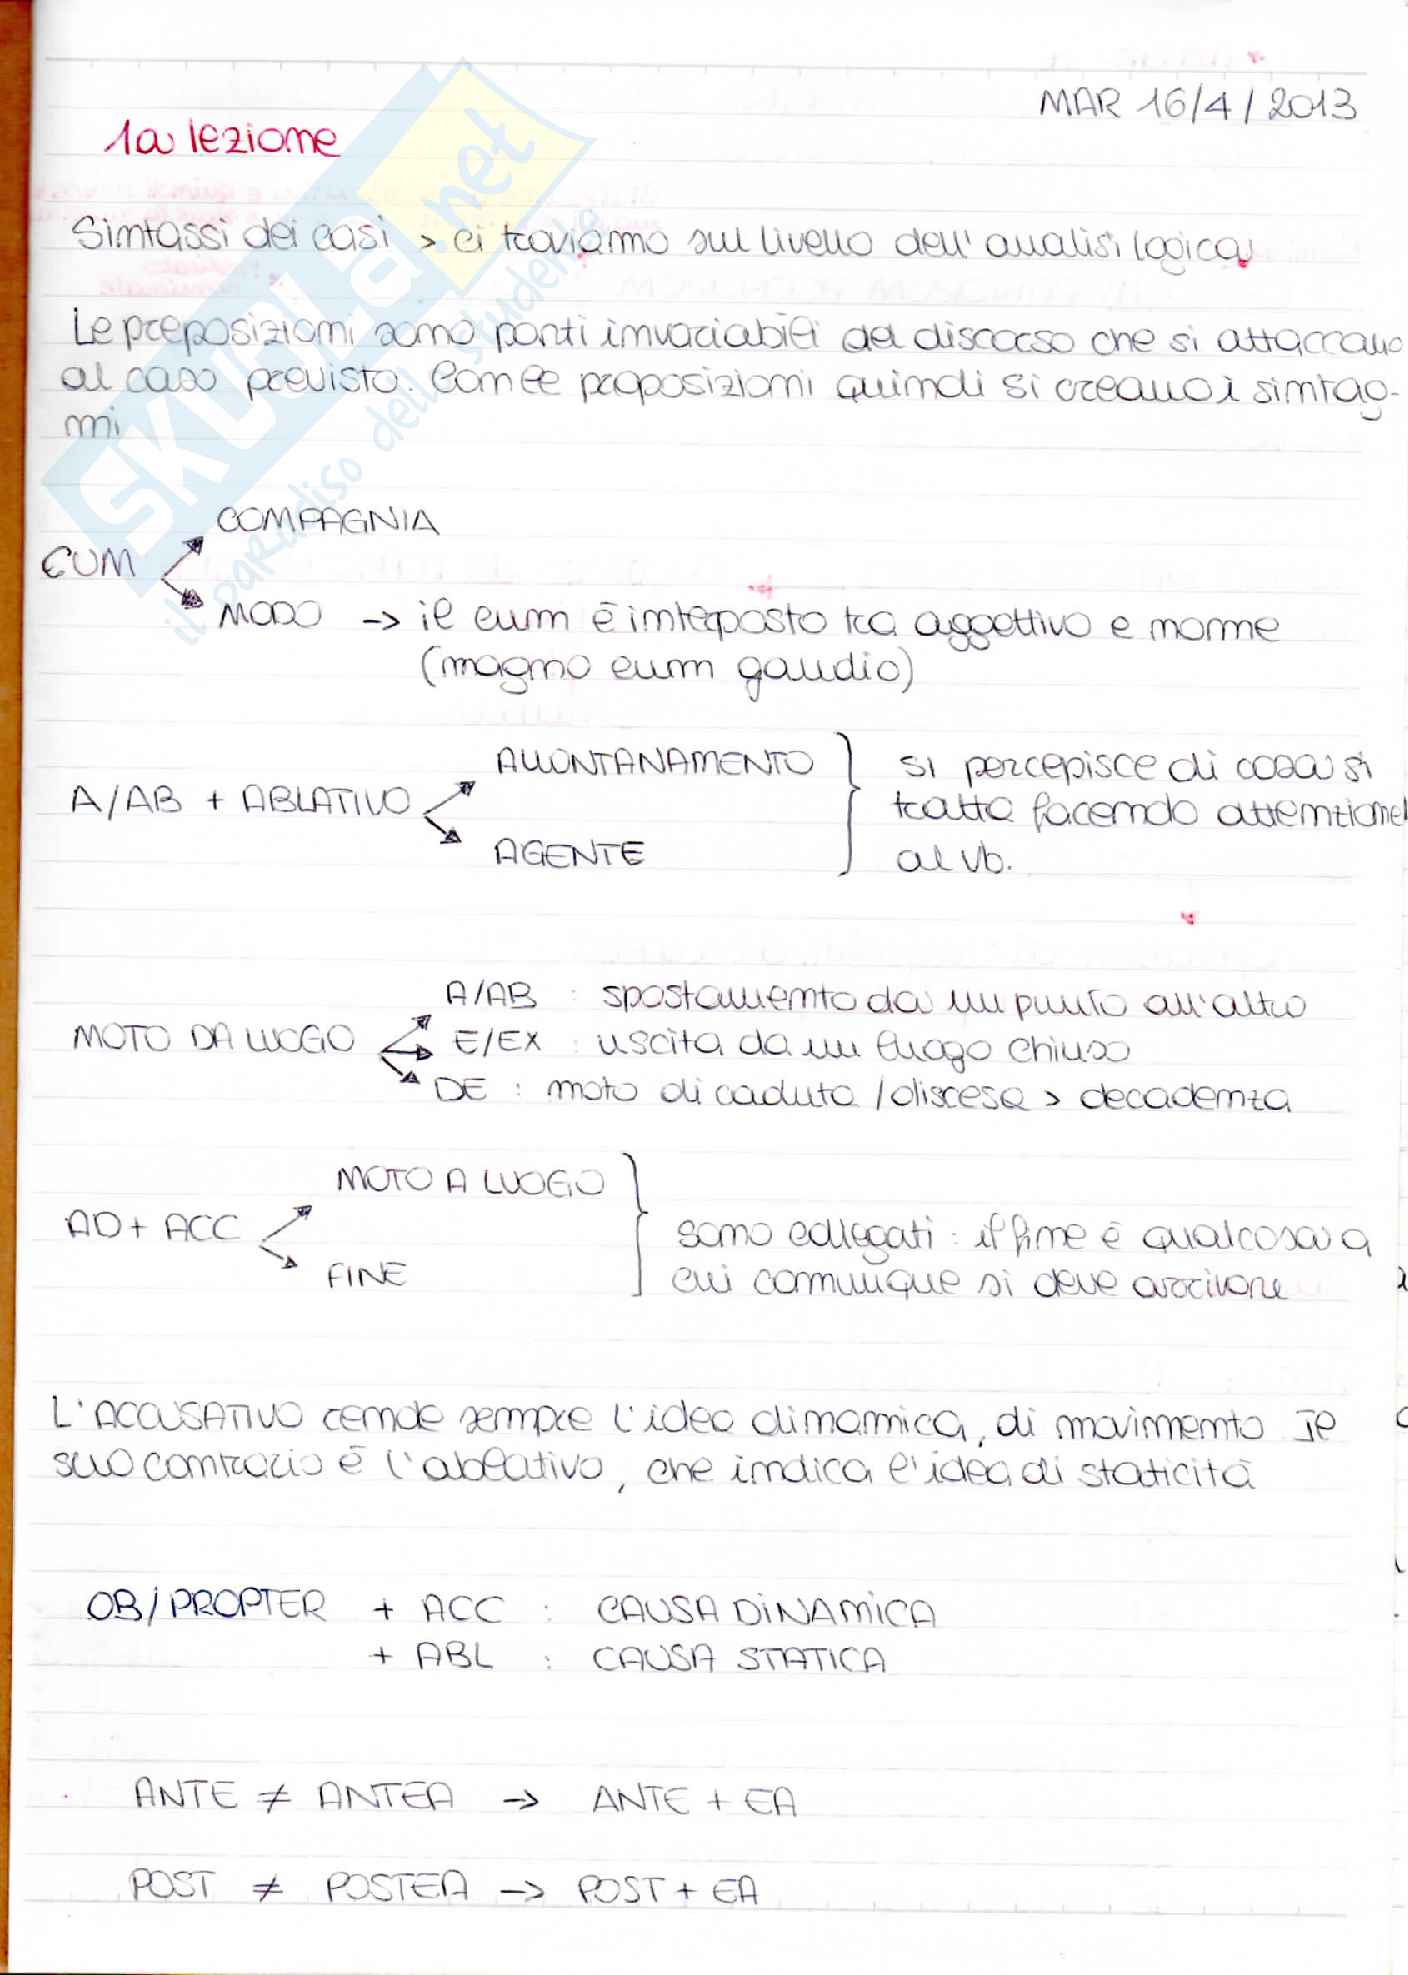 MAR 16/4/2013
1a lezione
Sintassi dei casi > ci troviamo sul livello dell'analisi logica
Le preposizioni sono parti invariabili del discorso che si attaccano
al caso previsto. Con le proposizioni quindi si creano i sintag-
mi
COMPAGNIA
CUM
MODO -> il cum è interposto tra aggettivo e nome
(magno cum gaudio)
ALLONTANAMENTO
A/AB + ABLATIVO
AGENTE
si percepisce di cosa si
tratta facendo attenzione
al vb.
A/AB : spostamento da un punto all'altro
MOTO DA LUOGO
E/EX : uscita da un luogo chiuso
DE : moto di caduta / discesa > decadenza
MOTO A LUOGO
AD + ACC
FINE
sono collegati : il fine è qualcosa a
cui comunque si deve arrivare
L'ACCUSATIVO rende sempre l'idea dinamica, di movimento Il
suo contrario è l'ablativo, che indica l'idea di staticità
OB/PROPTER + ACC : CAUSA DINAMICA
+ ABL : CAUSA STATICA
ANTE ≠ ANTEA -> ANTE + EA
POST ≠ POSTEA -> POST + EA
SKUOLA.net
il paradiso dello studente